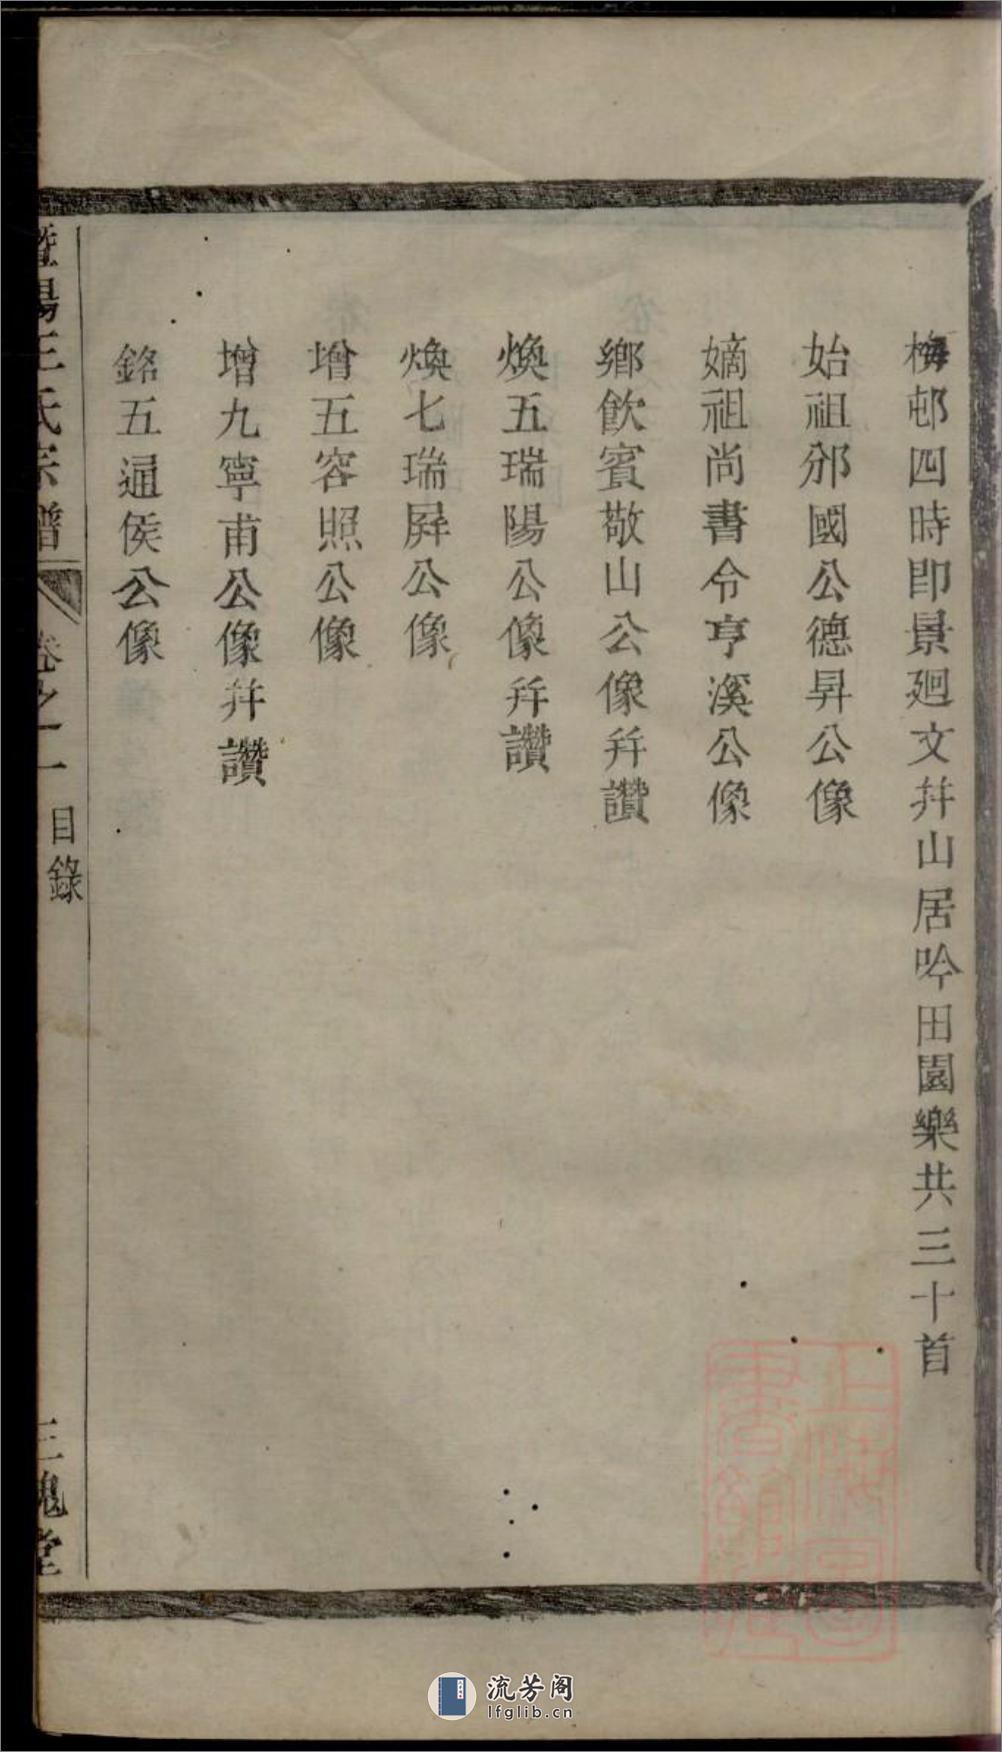 梅邨四時即景廻文并山居吟田園樂共三十首
始祖邠國公德昇公像
嫡祖尚書令亨溪公像
鄉飲賓敬山公像并讚
煥五瑞陽公像并讚
煥七瑞屏公像
增五容照公像
增九寧甫公像并讚
銘五通侯公像
暨陽王氏宗譜 卷之一 目錄 三槐堂
上海圖書館藏
流芳阁
lfglib.cn